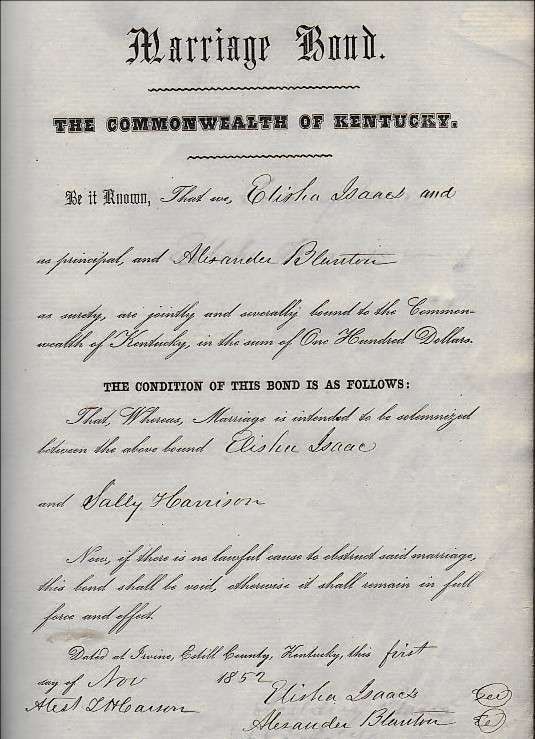 Marriage Bond.
THE COMMONWEALTH OF KENTUCKY.
Be it Known, That we, Elisha Isaacs and
as principal, and Alexander Blanton
as surety, are jointly and severally bound to the Common-
wealth of Kentucky, in the sum of One Hundred Dollars.
THE CONDITION OF THIS BOND IS AS FOLLOWS:
That, Whereas, Marriage is intended to be solemnized
between the above bound Elisha Isaac
and Sally Harrison
Now, if there is no lawful cause to obstruct said marriage,
this bond shall be void, otherwise it shall remain in full
force and effect.
Dated at Irvine, Estill County, Kentucky, this first
day of Nov 1852
Elisha Isaacs
Attest
Alexander Blanton